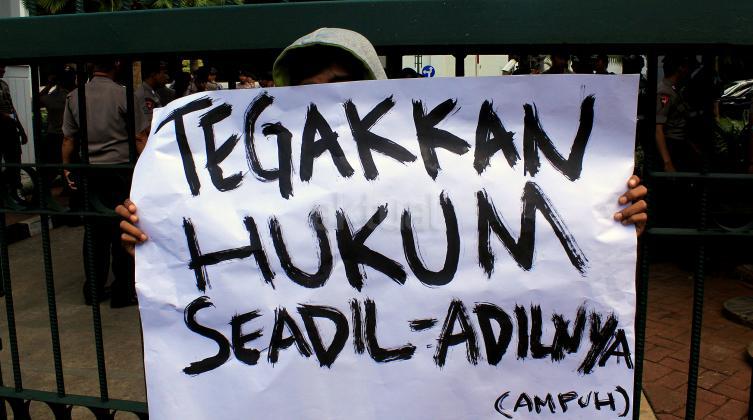 TEGAKKAN
HUKUM
SEADIL=ADILNYA
(AMPUH)